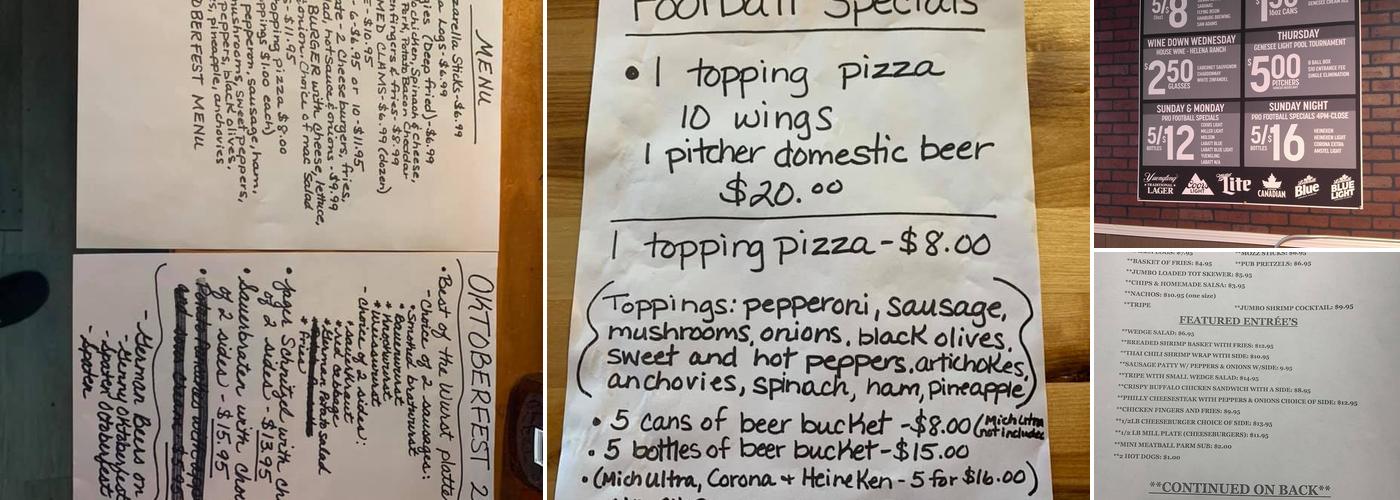 MENU
zarella Sticks-$6.99
a Logs-$6.99
gies (Deep fried)-$6.99
Pork, Potato Bacon Cheddar
n fingers & fries-$8.99
MED CLAMS-$6.99 (dozen)
E-$10.95
- 6-$6.95 or 10-$11.95
ate-2 Cheese burgers, fries,
lad, hot sauce & onions-$9.99
BURGER with cheese, lettuce,
onion. Choice of mac salad
S-$11.95
opping pizza $8.00
ppings $1.00 each)
pepperoni, sausage, ham,
mushrooms, sweet peppers,
peppers, black olives,
pineapple, anchovies
OBERFEST MENU
OKTOBERFEST 2
• Best of the Wurst platte
- Choice of 2 sausages:
• Smoked bratwurst
• Bauernwurst
• Knockwurst
• Weisswurst
- choice of 2 sides:
* Sauerkraut
* German Potato Salad
* Fries
• Jager Schnitzel with ch
of 2 sides - $13.95
• Sauerbraten with choi
of 2 sides - $15.95
- German Beers on
- Genny Oktoberfest
- Spaten Oktoberfest
- Spaten
Football Specials
• 1 topping pizza
10 wings
1 pitcher domestic beer
$20.00
1 topping pizza-$8.00
(Toppings: pepperoni, sausage,
mushrooms, onions, black olives,
sweet and hot peppers, artichokes,
anchovies, spinach, ham, pineapple)
• 5 cans of beer bucket -$8.00 (Mich Ultra not included
• 5 bottles of beer bucket-$15.00
• (Mich Ultra, Corona + Heineken - 5 for $16.00)
5/$8
16oz CANS
WINE DOWN WEDNESDAY
HOUSE WINE - HELENA RANCH
$2.50 GLASSES
CABERNET SAUVIGNON
CHARDONNAY
WHITE ZINFANDEL
THURSDAY
GENESEE LIGHT POOL TOURNAMENT
$5.00 PITCHERS
8 BALL BOX
$10 ENTRANCE FEE
SINGLE ELIMINATION
SUNDAY & MONDAY
PRO FOOTBALL SPECIALS
5/$12
BOTTLES
COORS LIGHT
MILLER LIGHT
MOLSON
LABATT BLUE
LABATT BLUE LIGHT
YUENGLING
LABATT N/A
SUNDAY NIGHT
PRO FOOTBALL SPECIALS 4PM-CLOSE
5/$16
BOTTLES
HEINEKEN
HEINEKEN LIGHT
CORONA EXTRA
AMSTEL LIGHT
Yuengling
TRADITIONAL
LAGER
Coors LIGHT
Miller Lite
CANADIAN
Blue
BLUE LIGHT
**BASKET OF FRIES: $4.95 **PUB PRETZELS: $6.95
**JUMBO LOADED TOT SKEWER: $5.95
**CHIPS & HOMEMADE SALSA: $3.95
**NACHOS: $10.95 (one size)
**TRIPE **JUMBO SHRIMP COCKTAIL: $9.95
FEATURED ENTRÉE'S
**WEDGE SALAD: $6.95
**BREADED SHRIMP BASKET WITH FRIES: $12.95
**THAI CHILI SHRIMP WRAP WITH SIDE: $10.95
**SAUSAGE PATTY W/ PEPPERS & ONIONS W/SIDE: 9.95
**TRIPE WITH SMALL WEDGE SALAD: $14.95
**CRISPY BUFFALO CHICKEN SANDWICH WITH A SIDE: $8.95
**PHILLY CHEESESTEAK WITH PEPPERS & ONIONS CHOICE OF SIDE: $12.95
**CHICKEN FINGERS AND FRIES: $9.95
**1/2LB CHEESEBURGER CHOICE OF SIDE: $13.95
**1/2 LB MILL PLATE (CHEESEBURGERS): $11.95
**MINI MEATBALL PARM SUB: $2.00
**2 HOT DOGS: $1.00
**CONTINUED ON BACK**